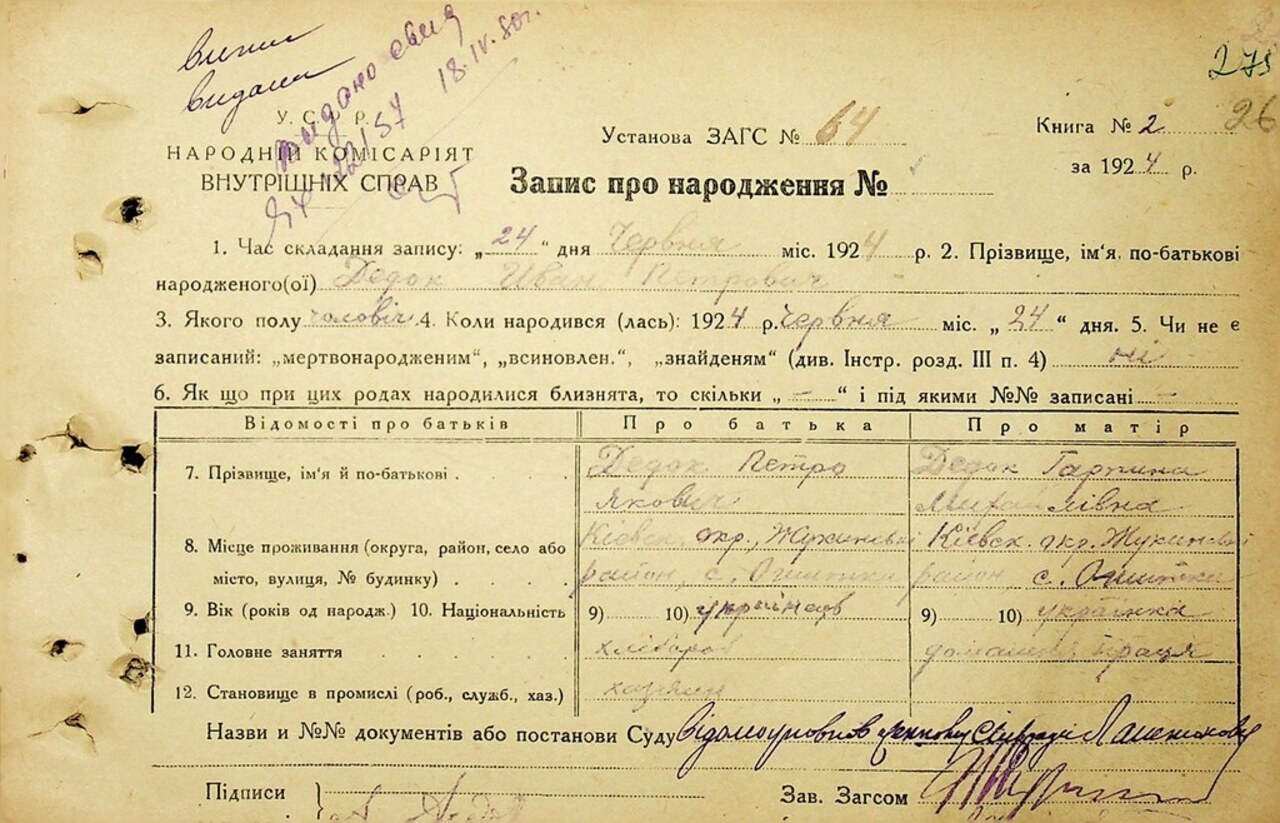 275
26
видано
18.IV.80г.
У. С. Р. Р.
НАРОДНІЙ КОМІСАРІЯТ
ВНУТРІШНІХ СПРАВ
Установа ЗАГС № 64
Книга № 2
за 1924 р.
Запис про народження №
1. Час складання запису: „24“ дня Червня міс. 1924 р. 2. Прізвище, ім‘я, по-батькові
народженого(ої) Дедок Иван Петрович
3. Якого полу чоловіч. 4. Коли народився (лась): 1924 р. червня міс. „24“ дня. 5. Чи не є
записаний: „мертвонародженим“, „всиновлен.“, „знайденям“ (див. Інстр. розд. III п. 4) ні
6. Як що при цих родах народилися близнята, то скільки „—“ і під якими №№ записані —
Відомості про батьків Про батька Про матір
7. Прізвище, ім‘я й по-батькові Дедок Петро Дедок Гарпина
Якович Михайлівна
8. Місце проживання (округа, район, село або Кіевск. окр., Кіевск. окр.
місто, вулиця, № будинку) район, с. район, с.
9. Вік (років од народж.) 10. Національність 9) 10) українець 9) 10) українка
11. Головне заняття хлібороб домашня праця
12. Становище в промислі (роб., служб., хаз.) хазяин
Назви и №№ документів або постанови Суду
Підписи
Зав. Загсом